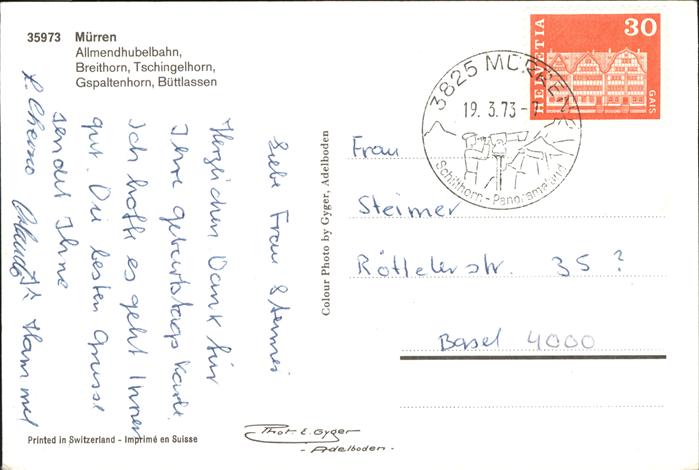 35973 Mürren
Allmendhubelbahn,
Breithorn, Tschingelhorn,
Gspaltenhorn, Büttlassen
Liebe Frau Steimer
Herzlichen Dank für
Ihre geburtstags Karte
Ich hoffe es geht Ihnen
gut. Die besten Grüsse
sendet Ihne
Hammel
Printed in Switzerland - Imprimé en Suisse
Colour Photo by Gyger, Adelboden
Phot. E. Gyger
- Adelboden -
3825 MÜRREN
19. 3. 73 - 7
Schilthorn - Panorama
HELVETIA
30
GAIS
Frau
Steimer
Röttelerstr. 35 ?
Basel 4000